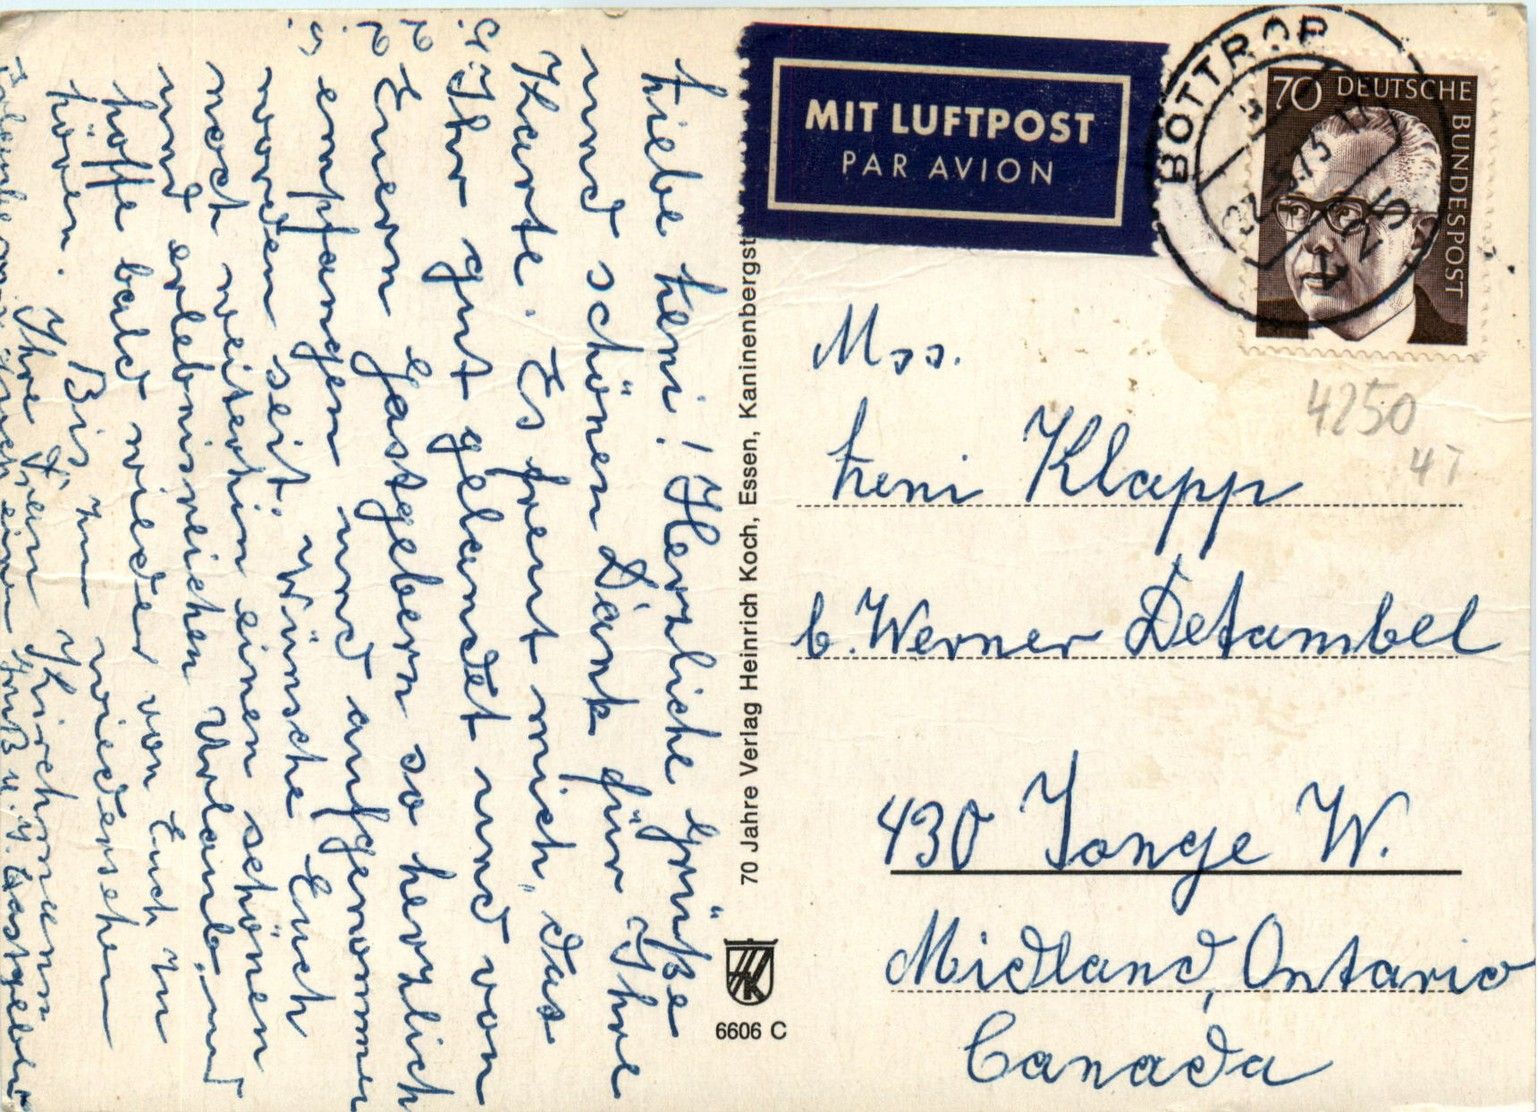 Liebe Leni! Herzliche Grüße
und schönen Dank für Ihre
Kharte. Es freut mich, das
Ihr gut gelandet und von
Euern Gastgebern so herzlich
empfangen und aufgenommen
worden seit. Wünsche Euch
noch weiterhin einen schönen
und erlebnisreichen Urlaub, und
hoffe bald wieder von Euch zu
hören. Bis zum wiedersehen
Ihre Frau Kirchmann
Gruß u. Gastgeber
70 Jahre Verlag Heinrich Koch, Essen, Kaninenbergst
HK
6606 C
MIT LUFTPOST
PAR AVION
BOTTROP
73
70 DEUTSCHE
BUNDESPOST
4250
Mss.
Leni Klapp
b. Werner Detambel
430 Yonge W.
Midland, Ontario
Canada